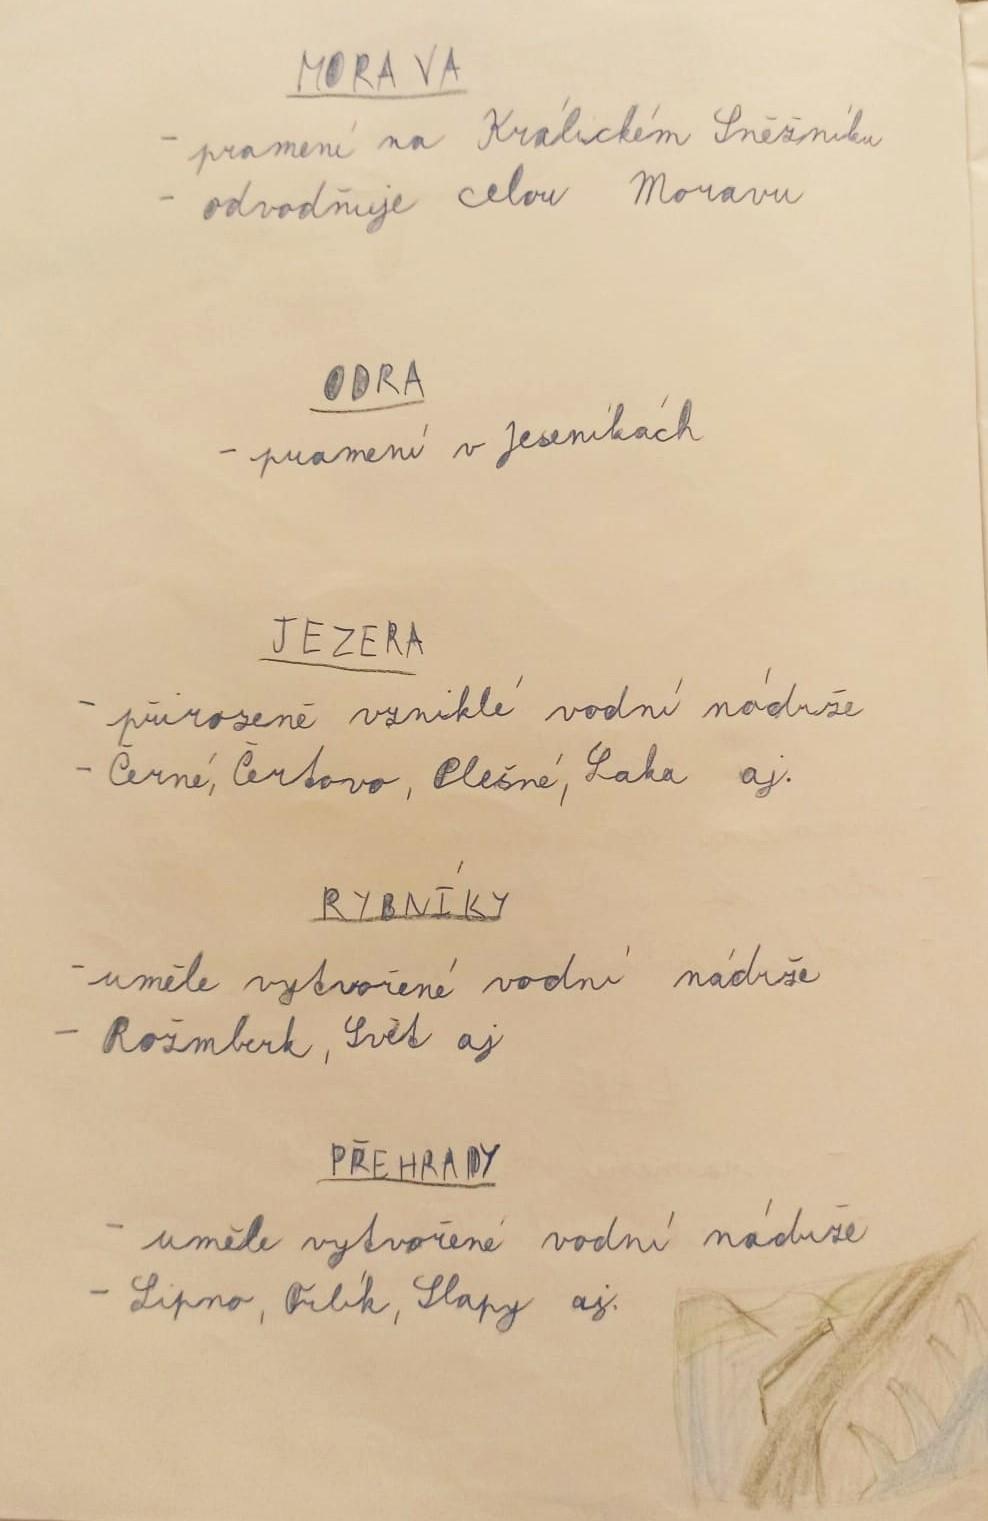 MORAVA
- pramení na Králickém Sněžníku
- odvodňuje celou Moravu
ODRA
- pramení v Jeseníkách
JEZERA
- přirozeně vzniklé vodní nádrže
- Černé, Čertovo, Plešné, Laka aj.
RYBNÍKY
- uměle vytvořené vodní nádrže
- Rožmberk, Svět aj
PŘEHRADY
- uměle vytvořené vodní nádrže
- Lipno, Orlík, Slapy aj.